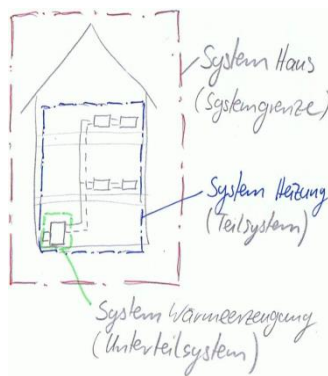 System Haus
(Systemgrenze)
System Heizung
(Teilsystem)
System Wärmeerzeugung
(Unterteilsystem)